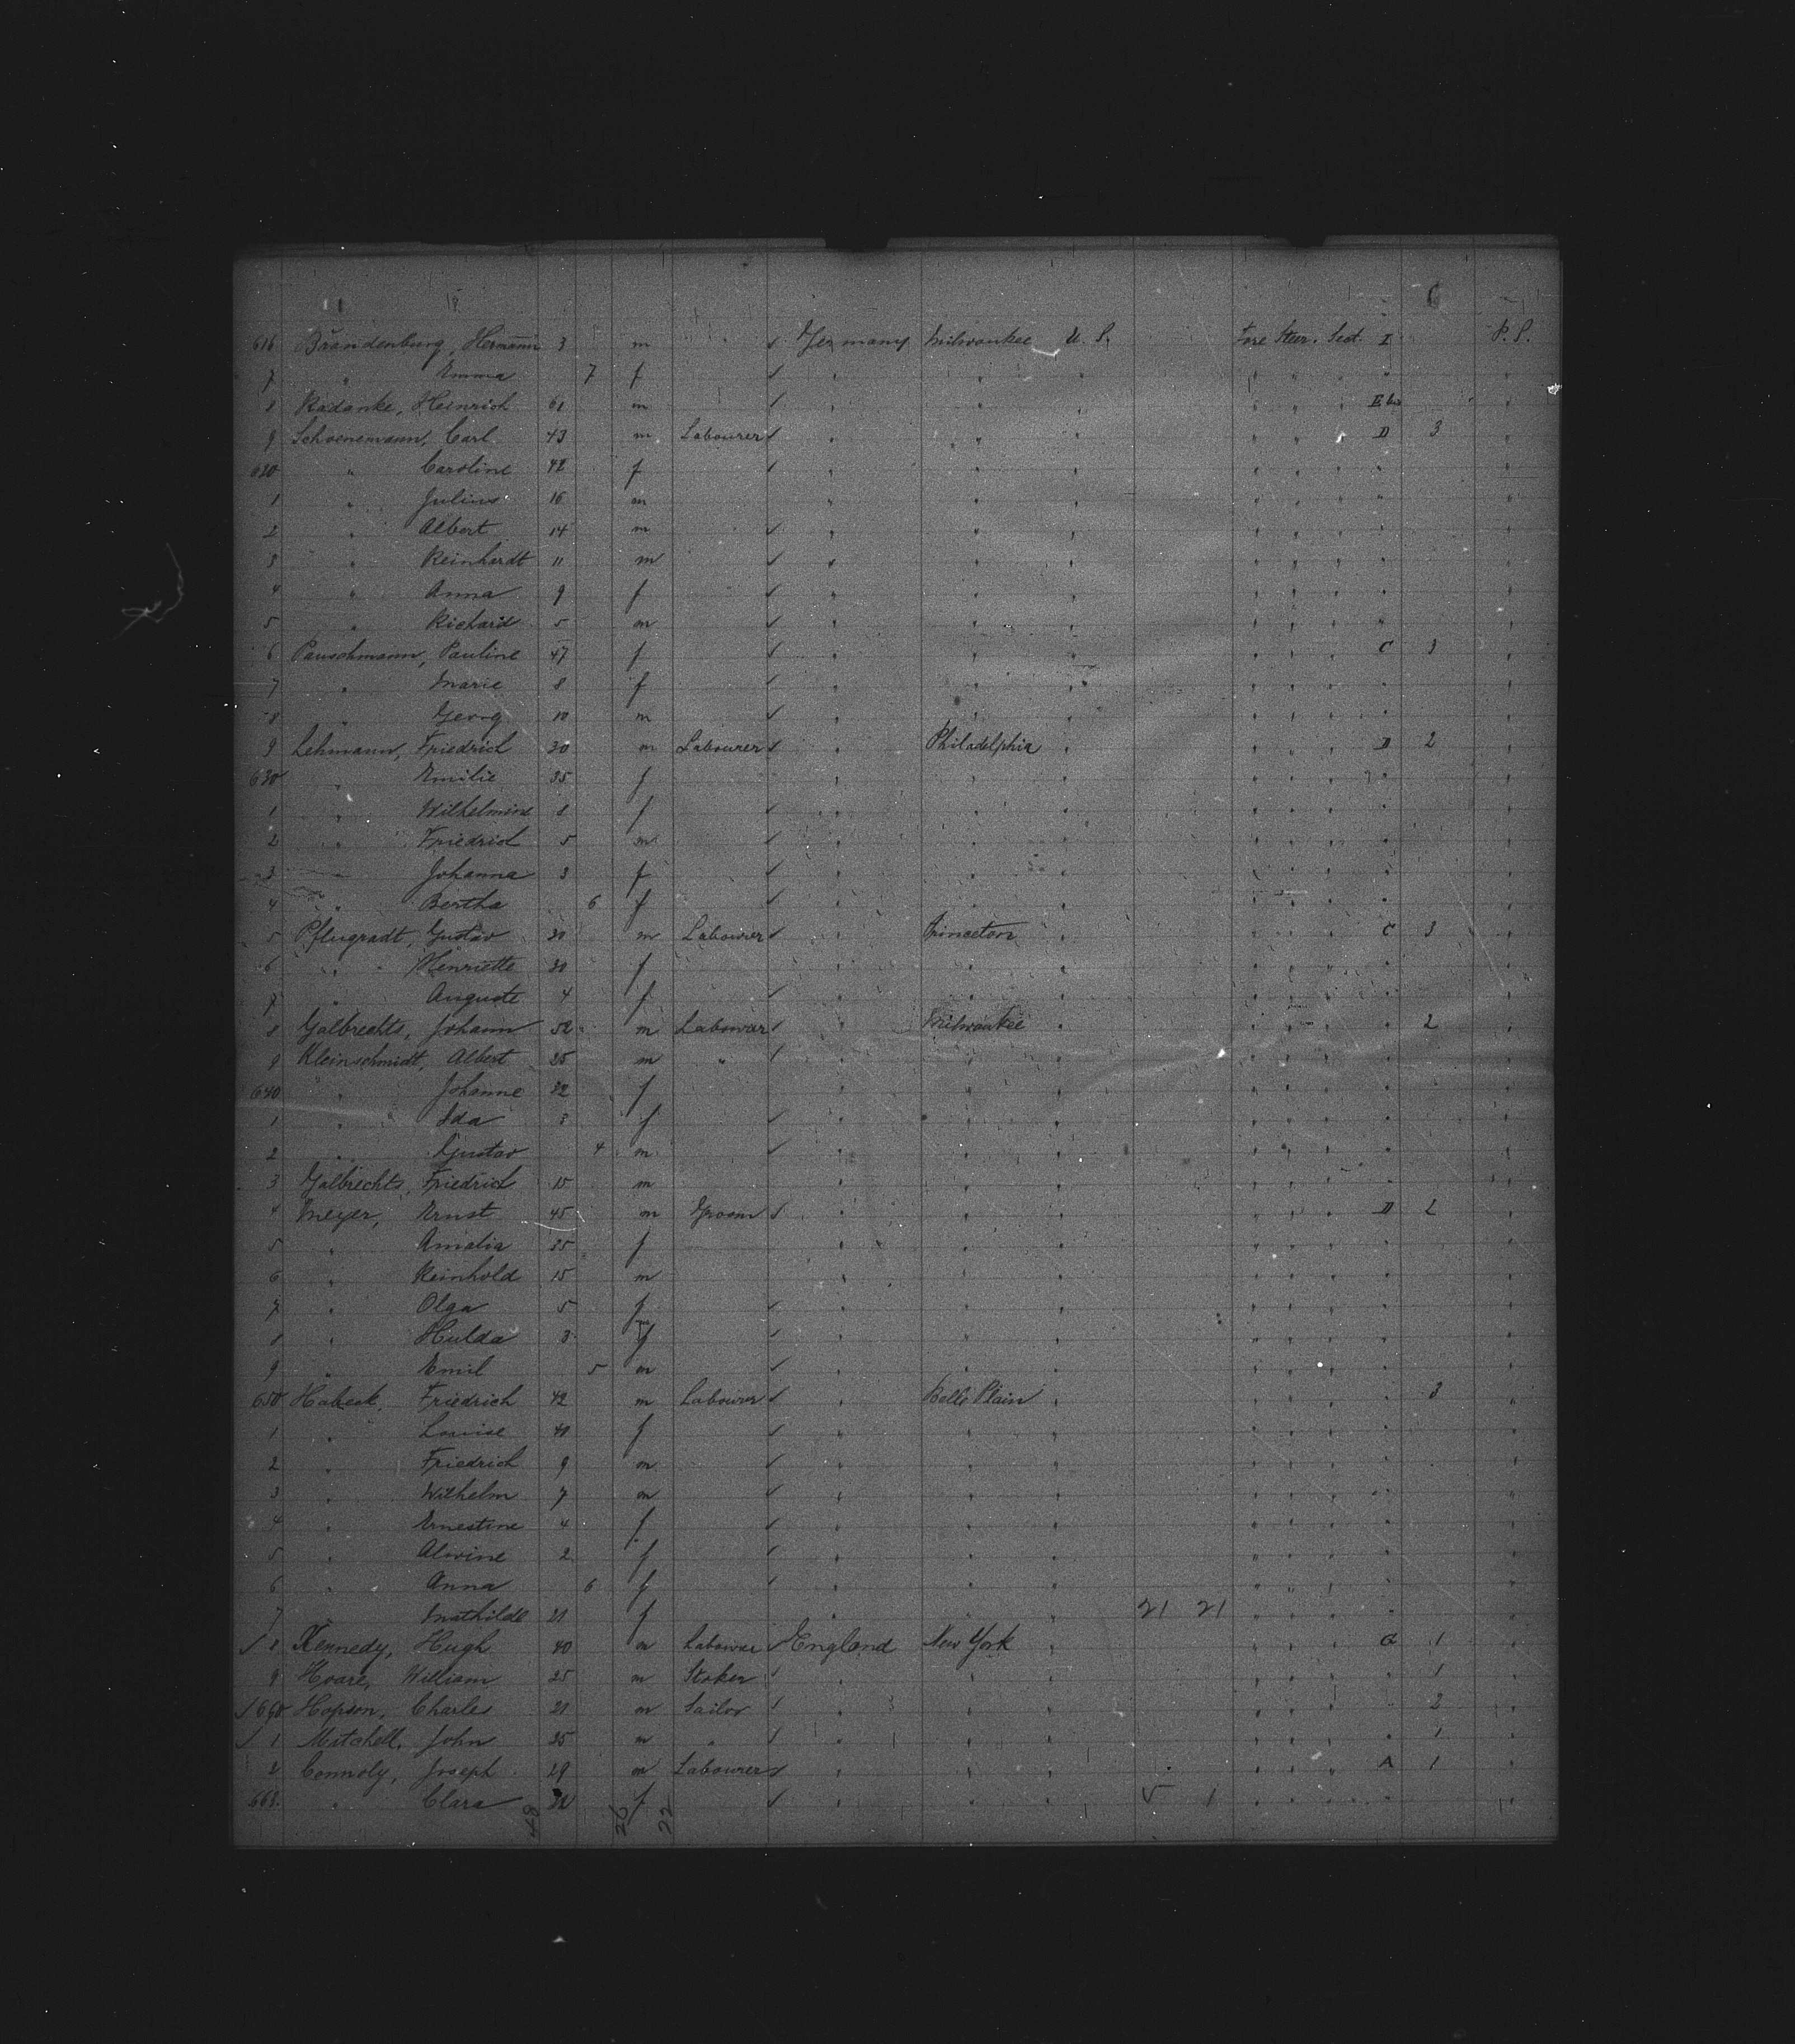 616 Brandenburg, Hermann 3 m ✓ Germany Milwaukee U. S. Fore Steer. Sect. I P. S.
7 " Emma 7 f ✓ " " " " " " " "
8 Radanke, Heinrich 61 m ✓ " " " " " " "
9 Schoenemann, Carl 43 m Labourer ✓ " " " " " " D 3 "
620 " Caroline 42 f ✓ " " " " " " " "
1 " Julius 16 m " " " " " " " "
2 " Albert 14 m ✓ " " " " " " " "
3 " Reinhardt 11 m ✓ " " " " " " " "
4 " Anna 9 f ✓ " " " " " " " "
5 " Richard 5 m ✓ " " " " " " " "
6 Pauschmann, Pauline 47 f ✓ " " " " " " C 3 "
7 " Marie 8 f ✓ " " " " " " " "
8 " Georg 10 m ✓ " " " " " " " "
9 Lehmann, Friedrich 30 m Labourer ✓ " Philadelphia " " " " D 2 "
630 " Emilie 35 f " " " " " " " "
1 " Wilhelmine 8 f ✓ " " " " " " " "
2 " Friedrich 5 m ✓ " " " " " " " "
3 " Johanna 3 f ✓ " " " " " " " "
4 " Bertha 6 f ✓ " " " " " " " "
5 Pflugradt, Gustav 30 m Labourer ✓ " Princeton " " " " C 3 "
6 " Henriette 30 f " " " " " " " "
7 " Auguste 4 f ✓ " " " " " " " "
8 Galbrechts, Johann 52 m Labourer ✓ " Milwaukee " " " " " 2 "
9 Kleinschmidt, Albert 25 m " ✓ " " " " " " " "
640 " Johanne 22 f " " " " " " " "
1 " Ida 3 f ✓ " " " " " " " "
2 " Gustav 4 m ✓ " " " " " " " "
3 Galbrechts, Friedrich 15 m " " " " " " " "
4 Meyer, Ernst 45 m Groom ✓ " " " " " " D 2 "
5 " Amalia 35 f " " " " " " " "
6 " Reinhold 15 m " " " " " " " "
7 " Olga 5 f ✓ " " " " " " " "
8 " Hulda 3 f ✓ " " " " " " " "
9 " Emil 5 m ✓ " " " " " " " "
650 Habeck, Friedrich 42 m Labourer ✓ " Belle Plain " " " " " 3 "
1 " Louise 40 f ✓ " " " " " " " "
2 " Friedrich 9 m ✓ " " " " " " " "
3 " Wilhelm 7 m ✓ " " " " " " " "
4 " Ernestine 4 f ✓ " " " " " " " "
5 " Alwine 2 f ✓ " " " " " " " "
6 " Anna 6 f ✓ " " " " " " " "
7 " Mathilde 21 f " " " 21 21 " " " " "
✓ 8 Kennedy, Hugh 40 m Labourer ✓ England New York " " " " G 1 "
9 Hoare, William 25 m Stoker ✓ " " " " " " " 1 "
✓ 660 Hopson, Charles 21 m Sailor ✓ " " " " " " " 2 "
✓ 1 Mitchell, John 25 m " ✓ " " " " " " " 1 "
2 Connoly, Joseph 29 m Labourer ✓ " " " " " " A 1 "
663 " Clara 22 f ✓ " " " 5 1 " " " " "
48 26 22